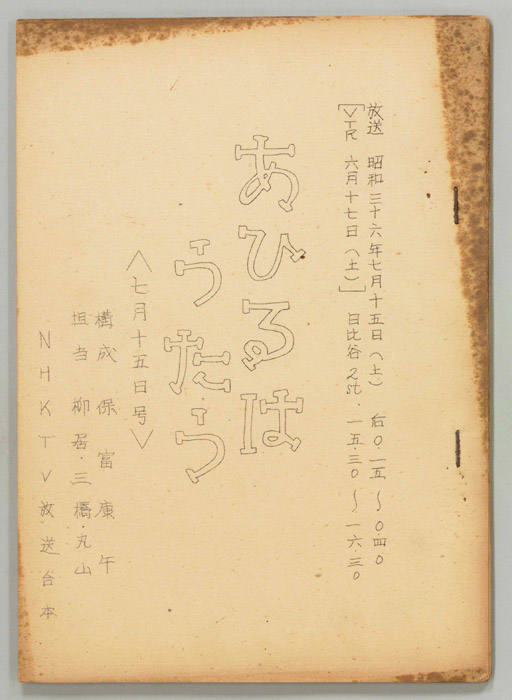 放送 昭和三十六年七月十五日(土) 后0.一五〜0.四0
[VTR 六月十七日(土)] 日比谷2st. 一五.三0〜一六.三0
あひるは
うたう
〈七月十五日号〉
構成 保富康午
担当 柳君・三橋・丸山
NHKTV放送台本